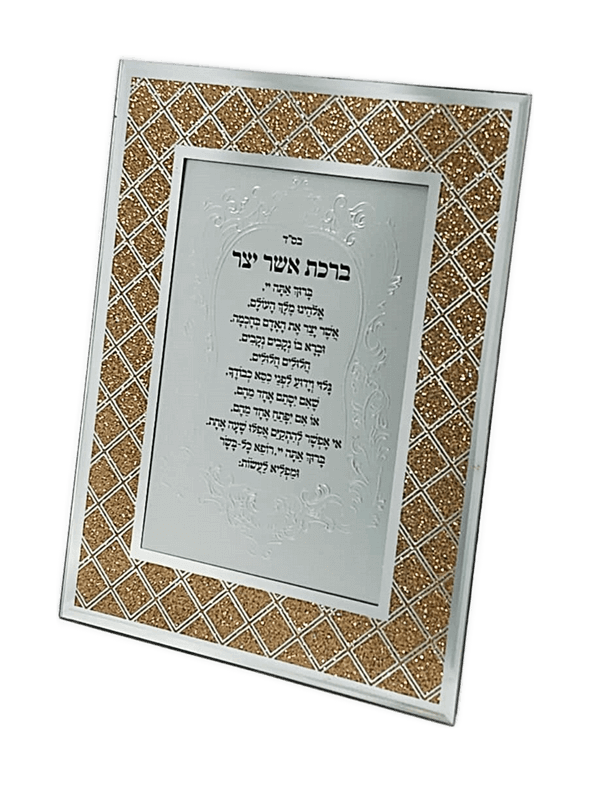 בס"ד
ברכת אשר יצר
בָּרוּךְ אַתָּה יְיָ,
אֱלֹהֵינוּ מֶלֶךְ הָעוֹלָם,
אֲשֶׁר יָצַר אֶת הָאָדָם בְּחָכְמָה.
וּבָרָא בוֹ נְקָבִים נְקָבִים.
חֲלוּלִים חֲלוּלִים.
גָּלוּי וְיָדוּעַ לִפְנֵי כִסֵּא כְבוֹדֶךָ,
שֶׁאִם יִסָּתֵם אֶחָד מֵהֶם,
אוֹ אִם יִפָּתֵחַ אֶחָד מֵהֶם,
אִי אֶפְשָׁר לְהִתְקַיֵּם אֲפִלּוּ שָׁעָה אֶחָת.
בָּרוּךְ אַתָּה יְיָ, רוֹפֵא כָל-בָּשָׂר
וּמַפְלִיא לַעֲשׂוֹת: